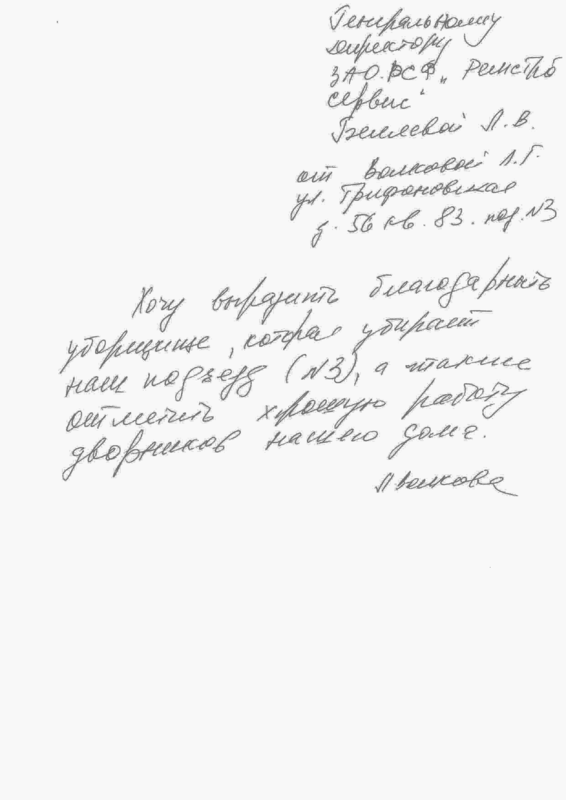 Генеральному
директору
ЗАО.РСФ „Ремстрой
сервис“
Беляевой Л.В.
от Волковой Л.Г.
ул. Трифоновская
д. 56 кв. 83. под. №3
Хочу выразить благодарность
уборщице, которая убирает
наш подъезд (№3), а также
отметить хорошую работу
дворников нашего дома.
Л Волкова